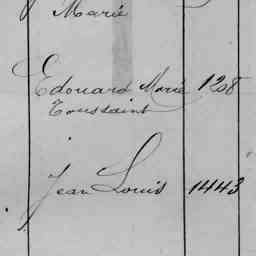 Marie
Edouard Marie 1208
Toussaint
Jean Louis 1443